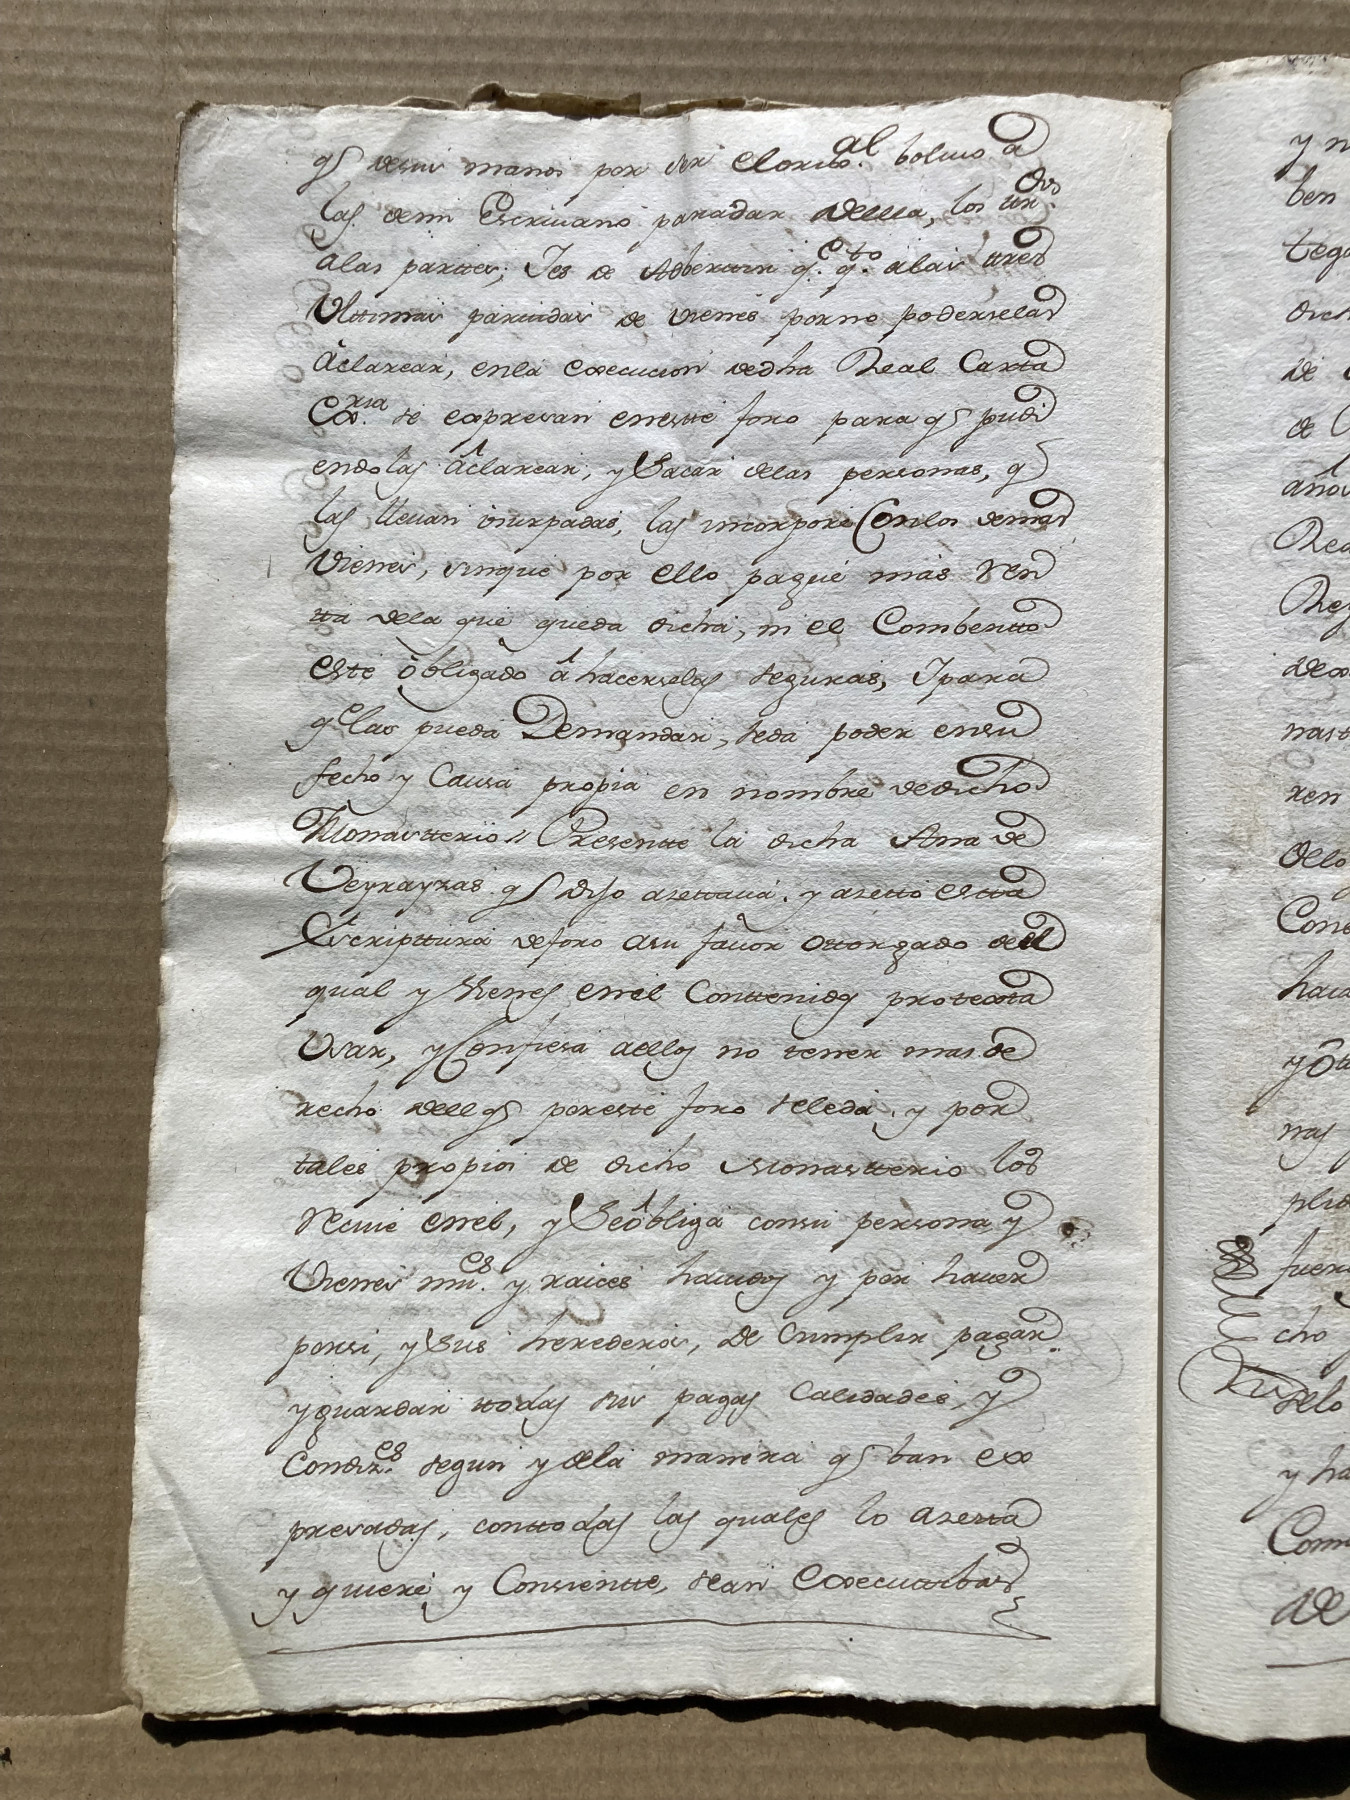 q.e desus manos por ser el orixin.al bolvio a
las de mi Escrivano para dar della, los tr.dos
a las parttes; Ies de Adbertir q.e q.to a las tres
Ulttimas partidas de vienes por no poderselas
âclarear, en la execucion de dha Real Cartta
Ex.ria se expresan en estte foro para q.e pudi
endolas âclarear, y Sacar de las personas, q.e
las llevan usurpadas, las incorpore Con los demas
vienes, sin que por ello pague mas ren
tta de la que queda dicha, ni el Combentto
este ôbligado â hacerselas seguras, I para
q.e las pueda Demandar, se da poder en su
fecho y Causa propia en nombre de dicho
Monastterio // Presentte la dicha Ana de
Veyrayzas q.e dijo azettava. y azetto estta
Escripttura de foro a su favor ottorgado de el
qual y vienes en el Conttenidos protexta
Usar, y Confiesa a ellos no tener mas de
recho del q.e por este foro se le da, y por
tales propios de dicho Monastterio los
recive en el, y Se ôbliga con su persona, y
Vienes mu.es y raices havidos y por haver
por si, y Sus herederos, de Cumplir pagar
y guardar ttodas sus pagas Calidades, y
Condiz.es segun y de la manera q.e ban ex
presadas, con ttodas las quales lo azetta
y quiere y Consientte, sean Executtibas
y n
ben
tega
dich
de
de
años
Rea
Rey
de
nast
ren
dello
Conc
hacia
y ôt
nas
plid
fuer
cho
selo
y ha
Com
de